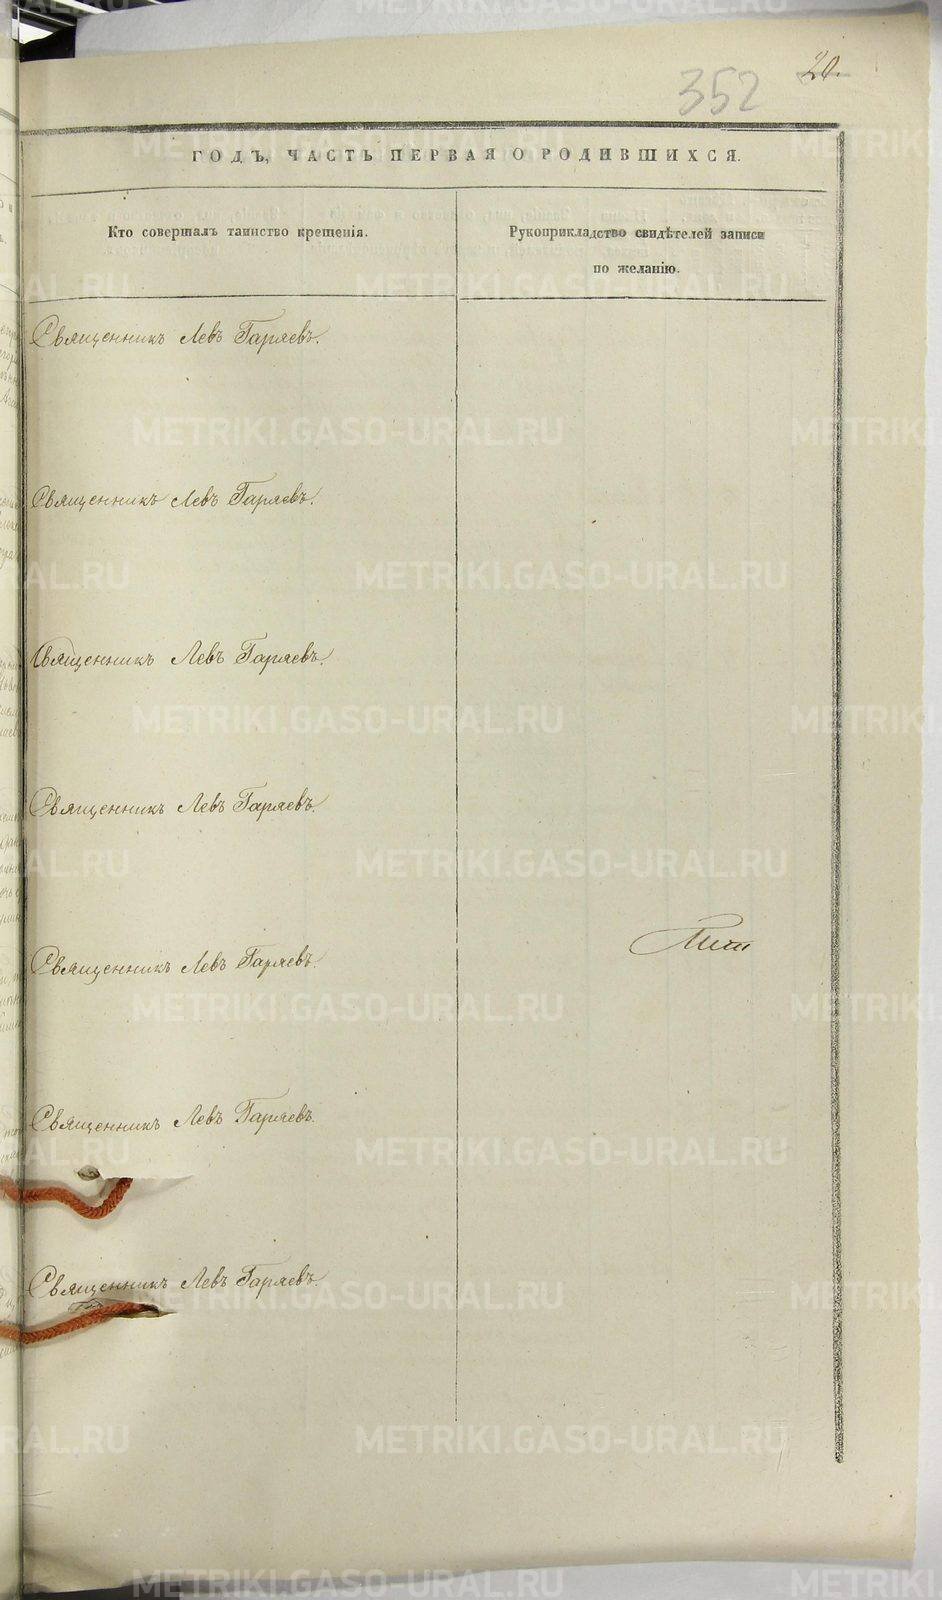 20.
352
ГОДЪ, ЧАСТЬ ПЕРВАЯ О РОДИВШИХСЯ.
Кто совершалъ таинство крещенія.
Рукоприкладство свидѣтелей записи
по желанію.
Священникъ Левъ Гаряевъ.
Священникъ Левъ Гаряевъ.
Священникъ Левъ Гаряевъ.
Священникъ Левъ Гаряевъ.
Священникъ Левъ Гаряевъ.
Священникъ Левъ Гаряевъ.
Священникъ Левъ Гаряевъ.
METRIKI.GASO-URAL.RU